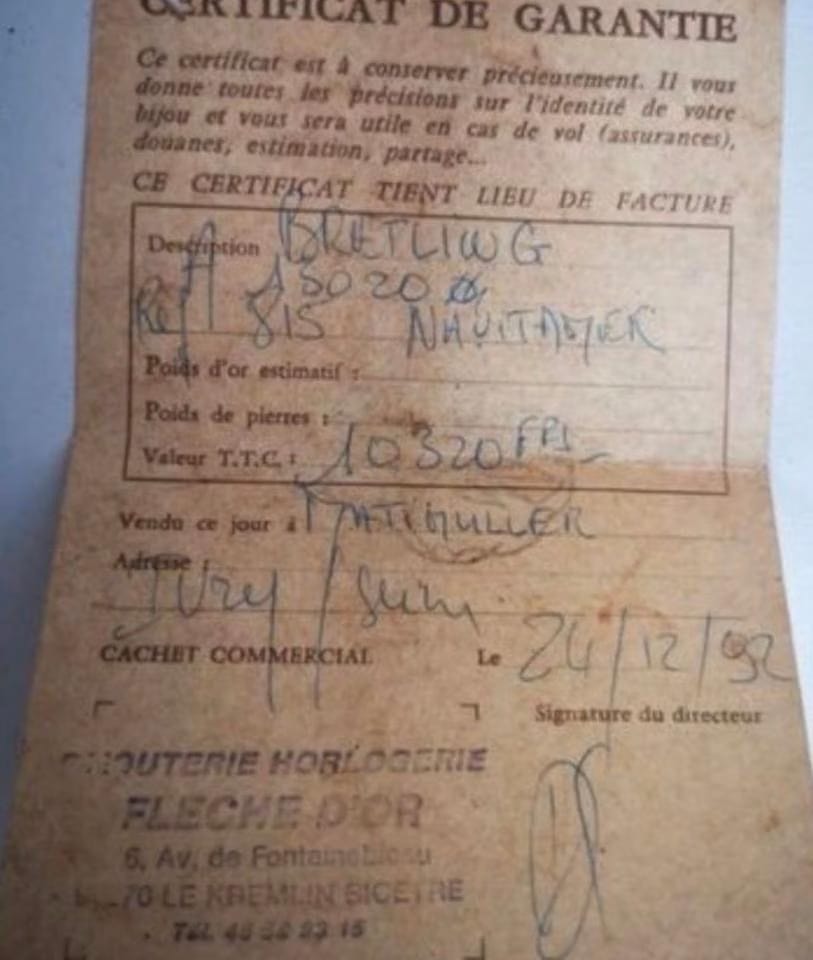 CERTIFICAT DE GARANTIE
Ce certificat est à conserver précieusement. Il vous
donne toutes les précisions sur l'identité de votre
bijou et vous sera utile en cas de vol (assurances),
douanes, estimation, partage...
CE CERTIFICAT TIENT LIEU DE FACTURE
Description BRETLING
A 13020
Ref 815 NAVITAMER
Poids d'or estimatif :
Poids de pierres :
Valeur T.T.C. : 10320
Vendu ce jour à MATIMULLER
Adresse :
Ivry / Seine
CACHET COMMERCIAL Le 24/12/92
Signature du directeur
BIJOUTERIE HORLOGERIE
FLECHE D'OR
6, Av. de Fontainebleau
70 LE KREMLIN BICETRE
Tél.